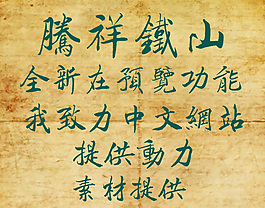 騰祥鐵山
全新在預覽功能
我致力中文網站
提供動力
素材提供